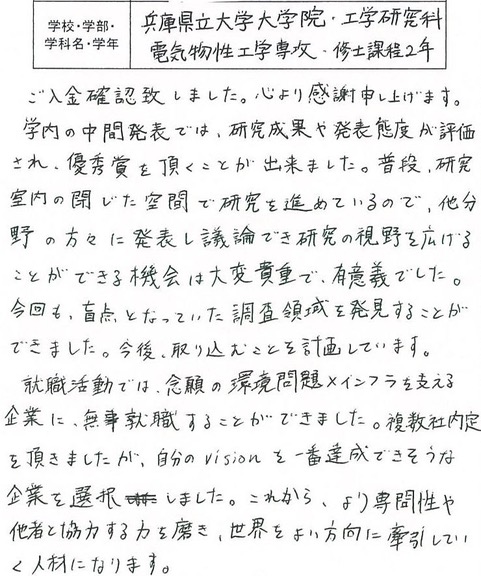 学校・学部・
学科名・学年
兵庫県立大学大学院・工学研究科
電気物性工学専攻・修士課程2年
ご入金確認致しました。心より感謝申し上げます。
学内の中間発表では、研究成果や発表態度が評価
され、優秀賞を頂くことが出来ました。普段、研究
室内の閉じた空間で研究を進めているので、他分
野の方々に発表し議論でき研究の視野を広げる
ことができる機会は大変貴重で、有意義でした。
今回も、盲点となっていた調査領域を発見することが
できました。今後、取り込むことを計画しています。
就職活動では、念願の環境問題×インフラを支える
企業に、無事就職することができました。複数社内定
を頂きましたが、自分のvisionを一番達成できそうな
企業を選択しました。これから、より専門性や
他者と協力する力を磨き、世界をよい方向に牽引してい
く人材になります。